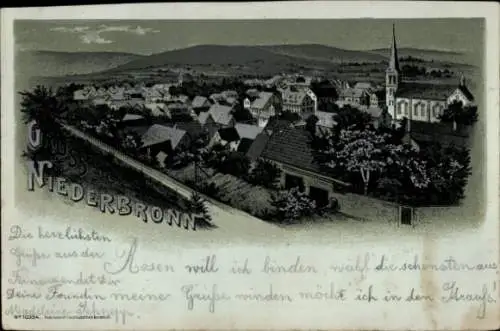 Gruss aus
NIEDERBRONN
Die herzlichsten
Grüße aus der
Ferne sendet dir
Deine Freundin
Madeleine
Rosen will ich binden, wähl die schönsten aus
meine Grüße winden möcht ich in den Strauß!